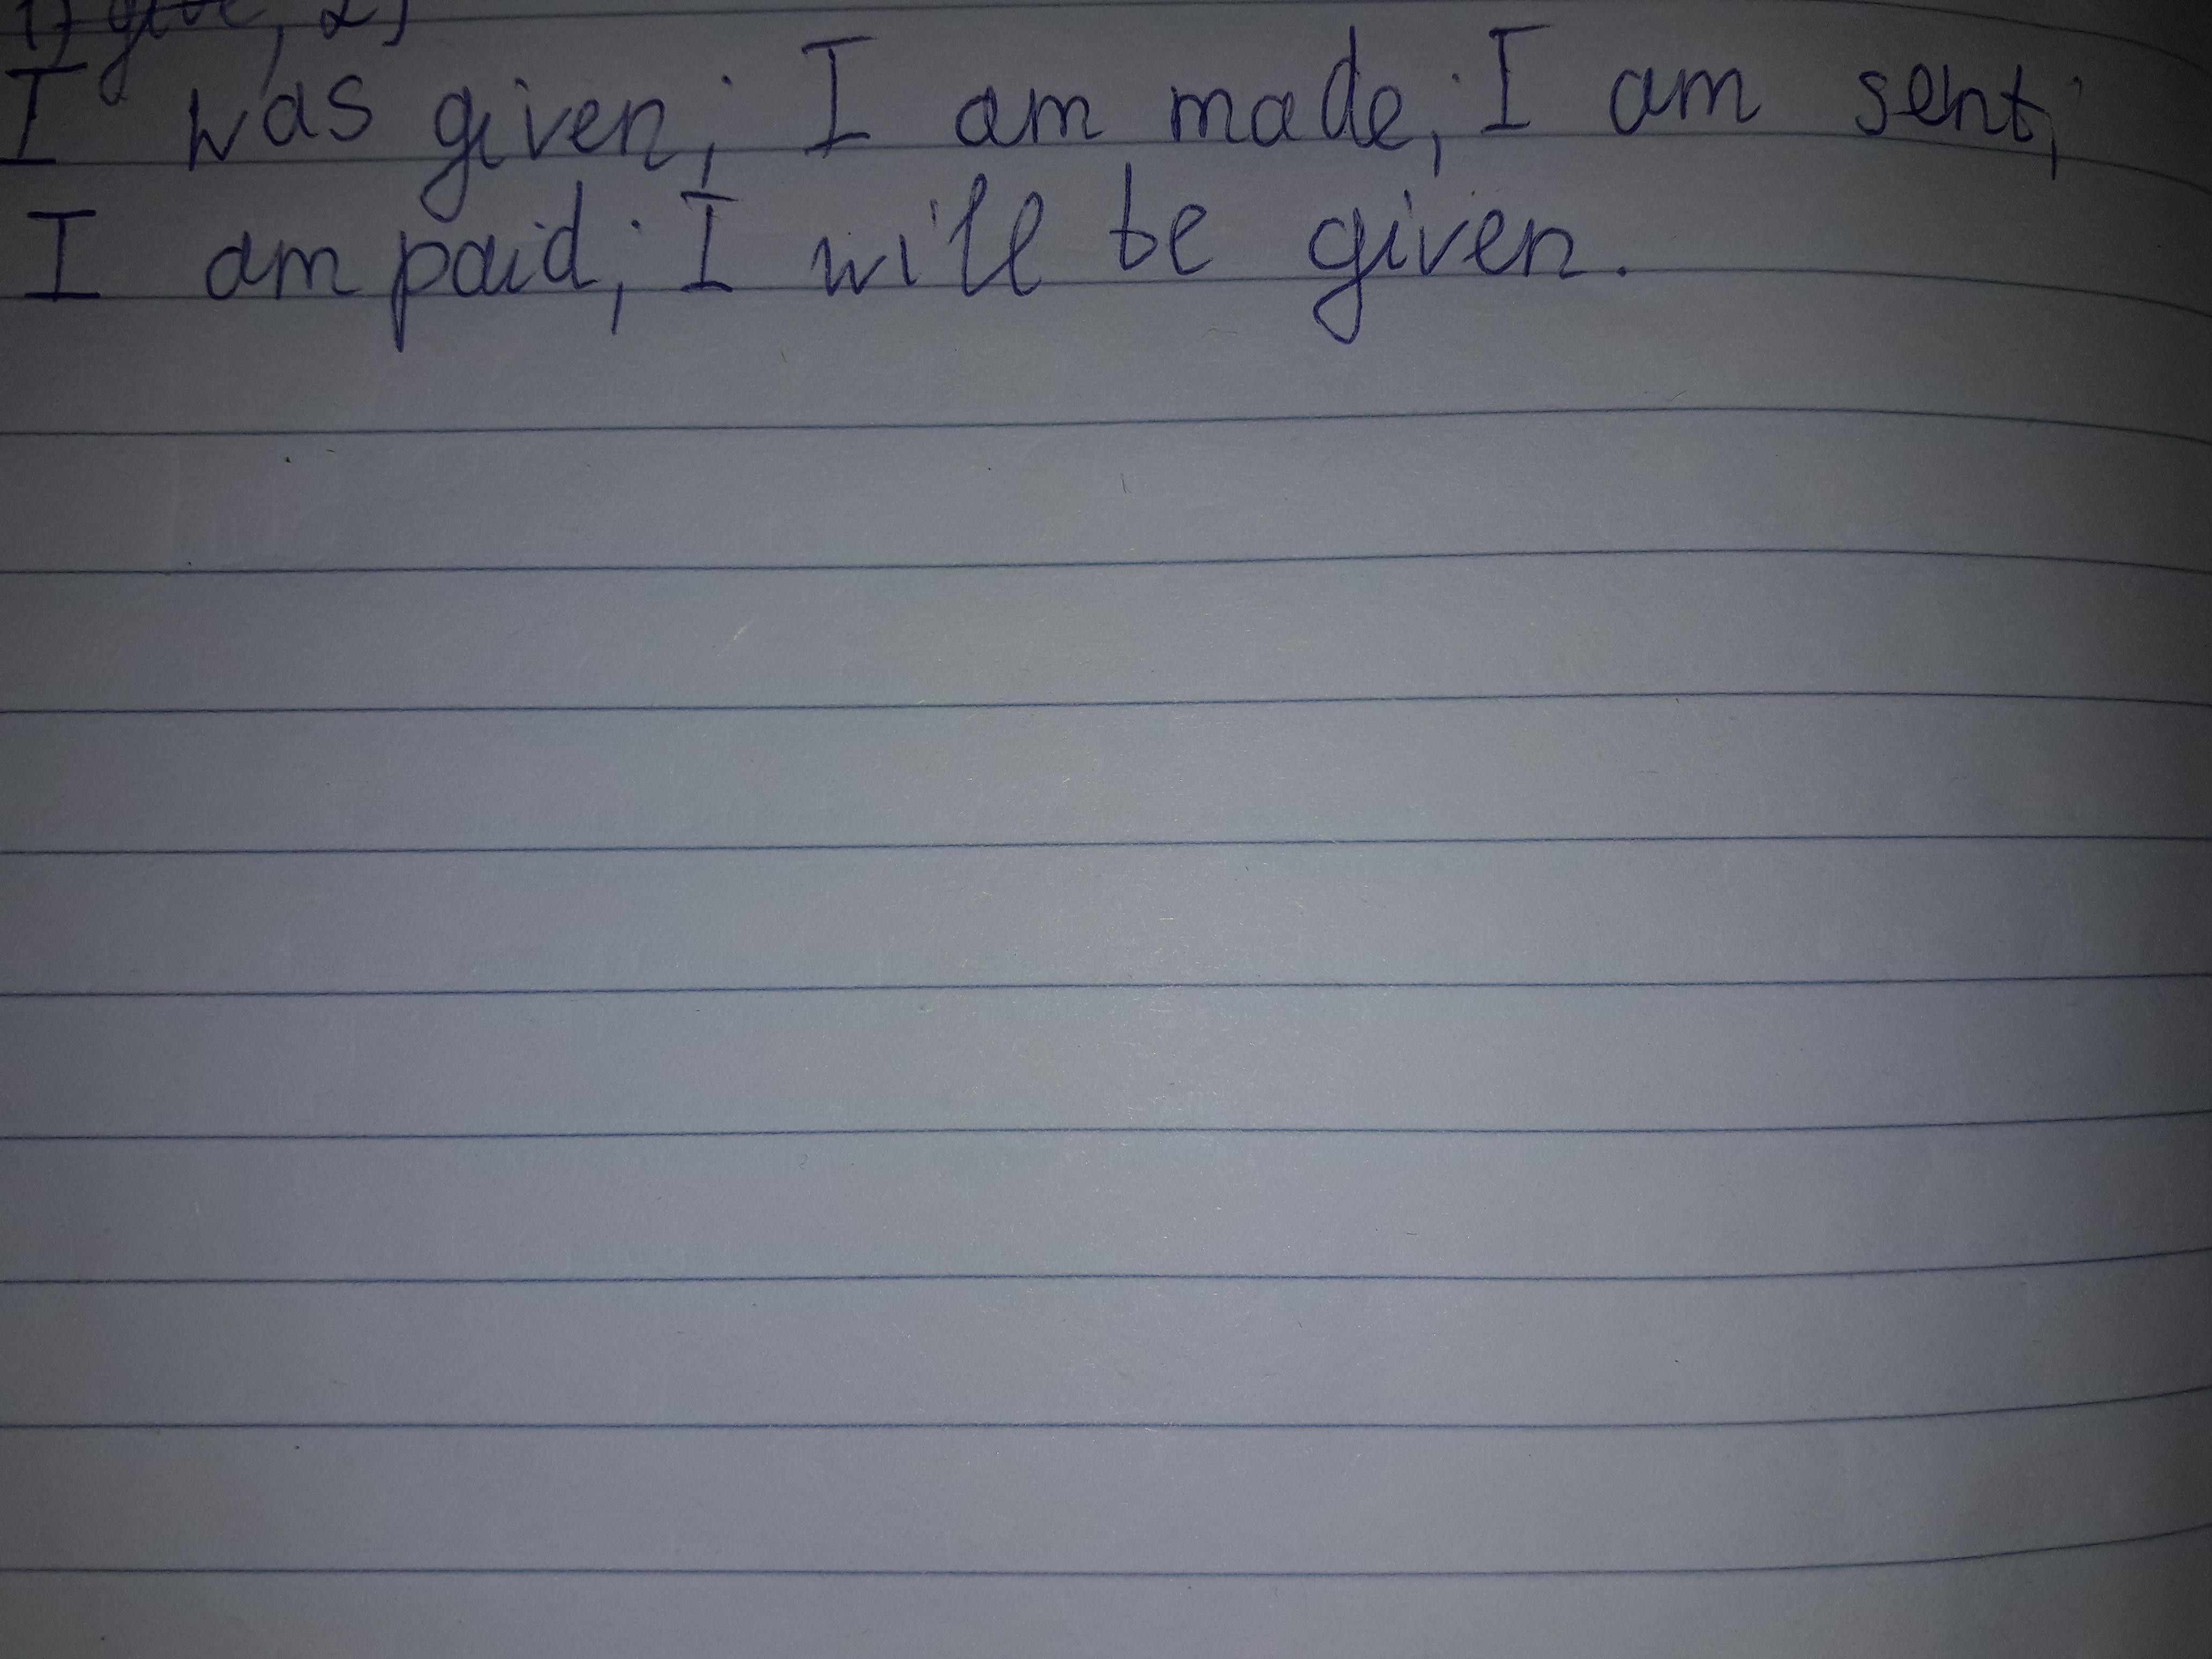 1) give, 2)
I was given; I am made; I am sent;
I am paid; I will be given.